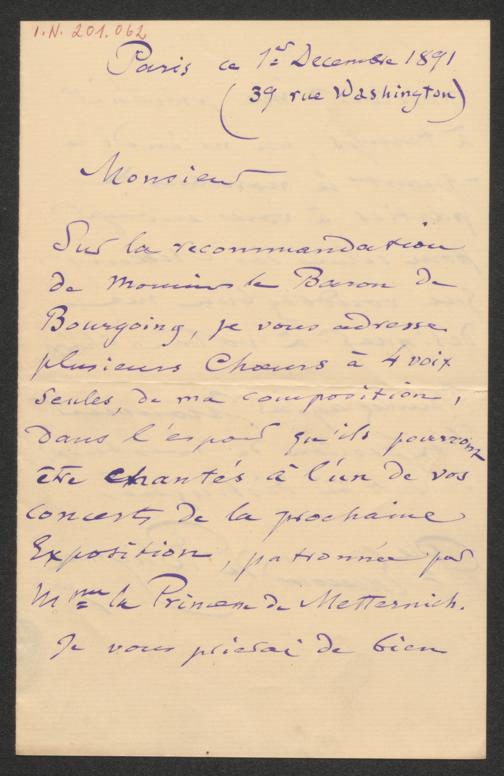 I.N. 201.062
Paris ce 1er Decembre 1891
(39 rue Washington)
Monsieur
Sur la recommandation
de Monsieur le Baron de
Bourgoing, je vous adresse
plusieurs Chœurs à 4 voix
seules, de ma composition,
dans l'espoir qu'ils pourront
être chantés à l'un de vos
concerts de la prochaine
Exposition, patronnée par
Mme la Princesse de Metternich.
Je vous prierai de bien